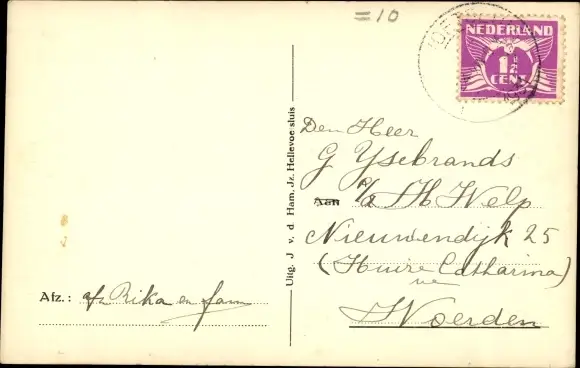 =10
NEDERLAND
1½
CENT
Den Heer
G Ysebrands
Aan c/o H Welp
Nieuwendijk 25
(Huize Catharina)
Woerden
Afz.: Rika en fam
Uitg. J v. d Ham. Jz. Hellevoe sluis